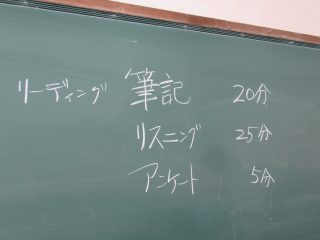 リーディング 筆記 20分
リスニング 25分
アンケート 5分